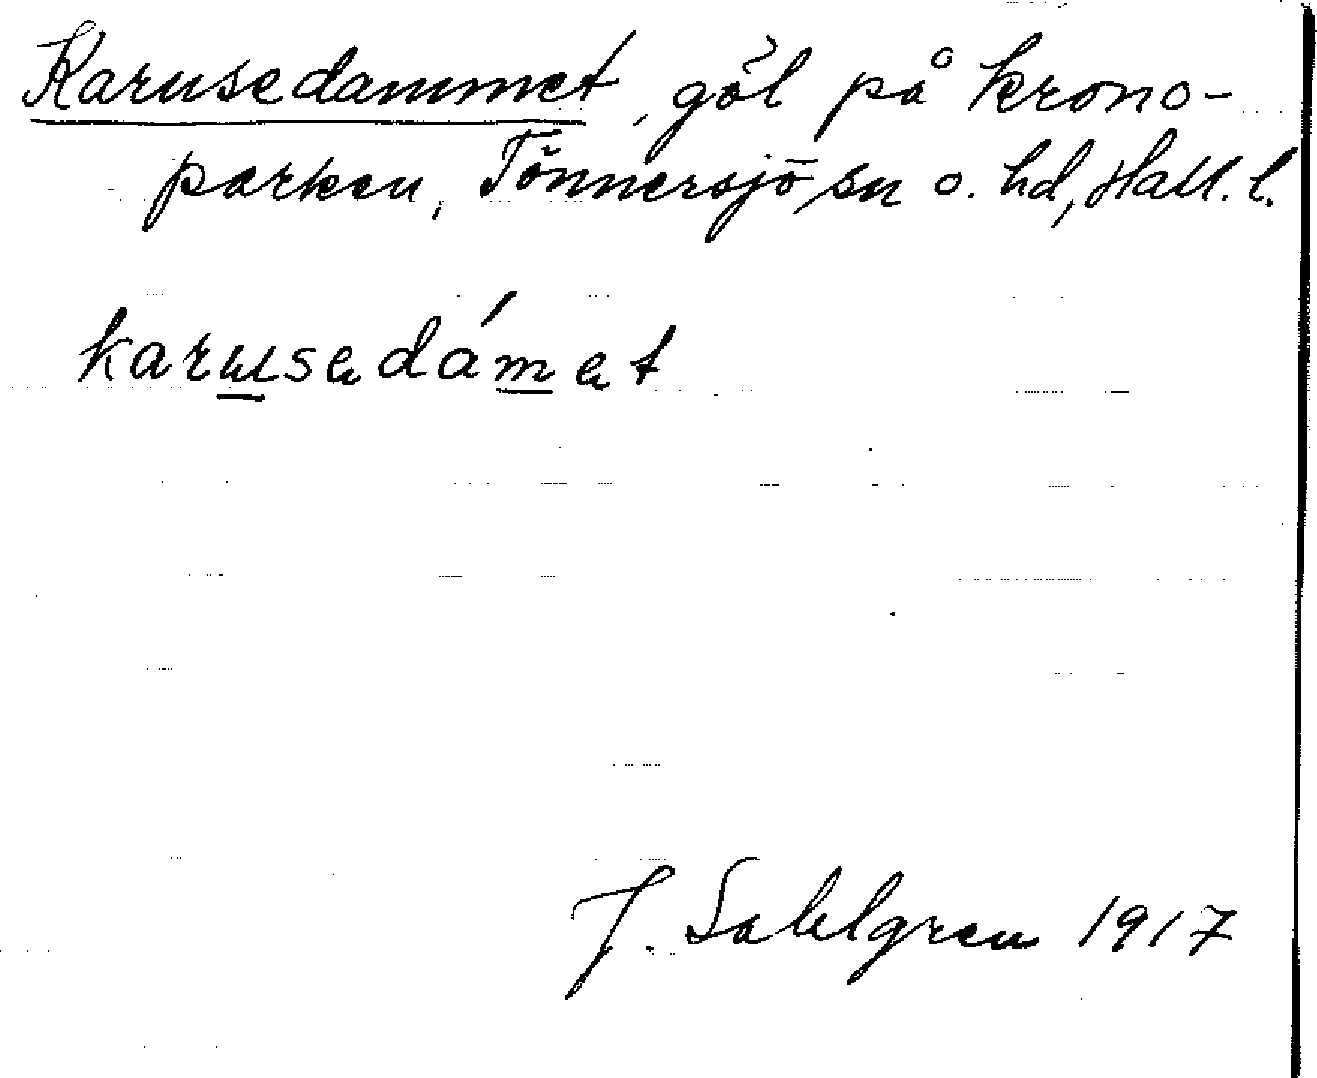 Karusedammet, göl på krono-
parken, Tönnersjö sn o. hd, Hall. l.
karusedámet
J. Sahlgren 1917